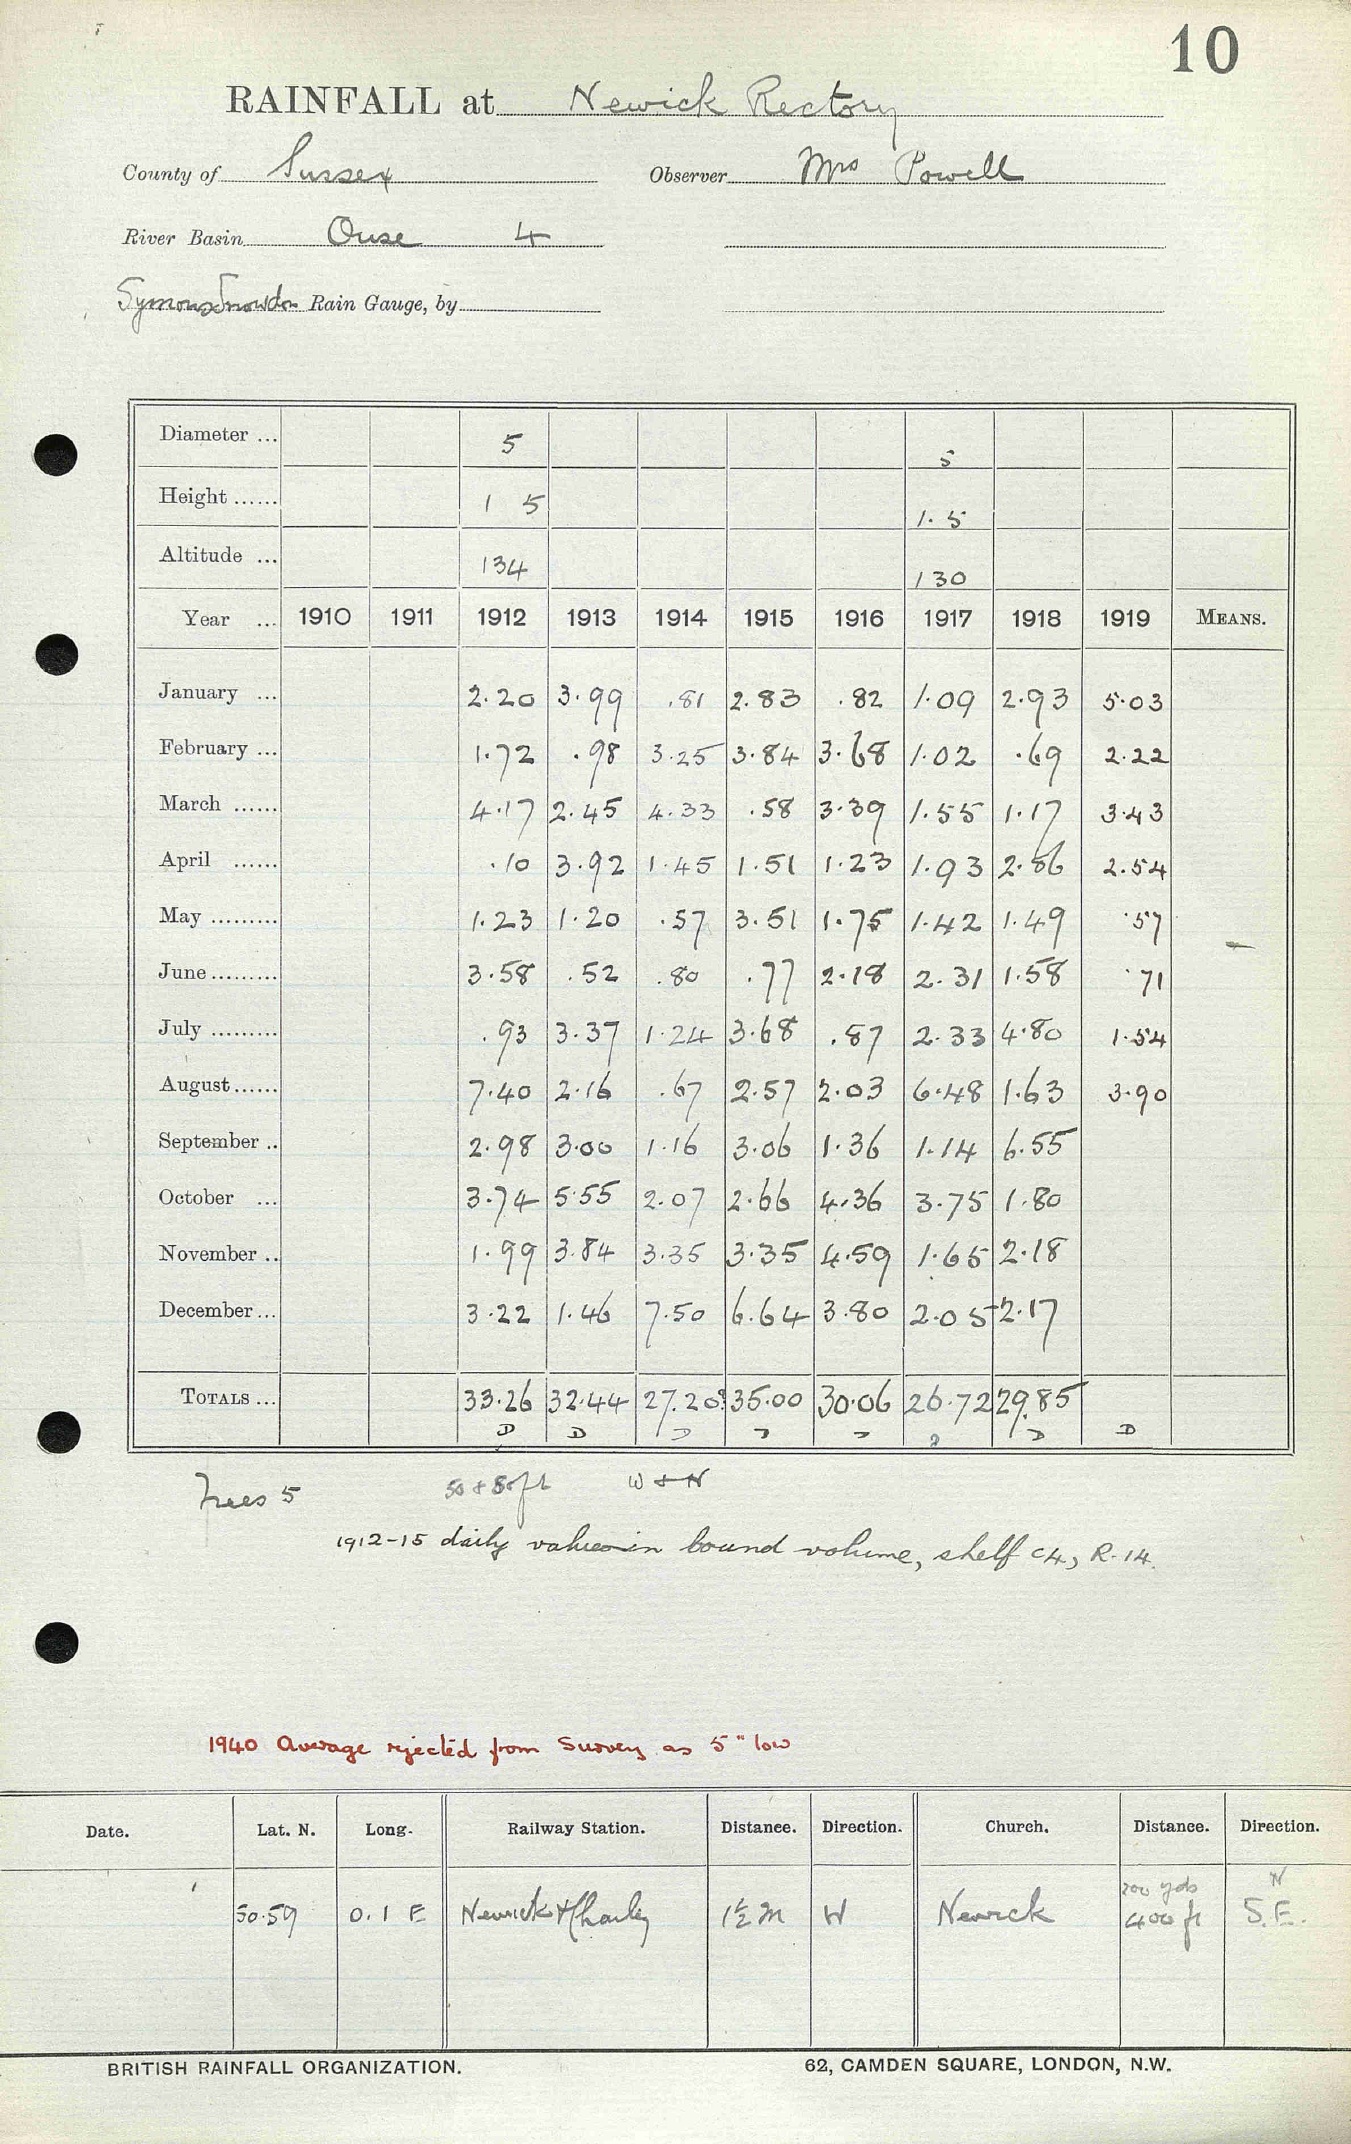 10
RAINFALL at Newick Rectory
County of Sussex Observer Mrs Powell
River Basin Ouse 4
Symons Snowdon Rain Gauge, by
Diameter ... 5 5
Height ...... 1 5 1.5
Altitude ... 134 130
Year ... 1910 1911 1912 1913 1914 1915 1916 1917 1918 1919 MEANS.
January ... 2.20 3.99 .81 2.83 .82 1.09 2.93 5.03
February ... 1.72 .98 3.25 3.84 3.68 1.02 .69 2.22
March ...... 4.17 2.45 4.33 .58 3.39 1.55 1.17 3.43
April ...... .10 3.92 1.45 1.51 1.23 1.93 2.86 2.54
May ......... 1.23 1.20 .57 3.51 1.75 1.42 1.49 .57
June ......... 3.58 .52 .80 .77 2.18 2.31 1.58 .71
July ......... .93 3.37 1.24 3.68 .87 2.33 4.80 1.54
August ...... 7.40 2.16 .67 2.57 2.03 6.48 1.63 3.90
September .. 2.98 3.00 1.16 3.06 1.36 1.14 6.55
October ... 3.74 5.55 2.07 2.66 4.36 3.75 1.80
November .. 1.99 3.84 3.35 3.35 4.59 1.65 2.18
December ... 3.22 1.46 7.50 6.64 3.80 2.05 2.17
TOTALS ... 33.26 32.44 27.20? 35.00 30.06 26.72 29.85
D D D D D
Trees 5 50 + 80ft W & N
1912-15 daily values in bound volume, shelf C4, R.14.
1940 Average rejected from Survey as 5" low
Date. Lat. N. Long. Railway Station. Distance. Direction. Church. Distance. Direction.
200 yds N
50.59 0.1 E Newick & Chailey 1½ m W Newick 400 ft S.E.
BRITISH RAINFALL ORGANIZATION. 62, CAMDEN SQUARE, LONDON, N.W.